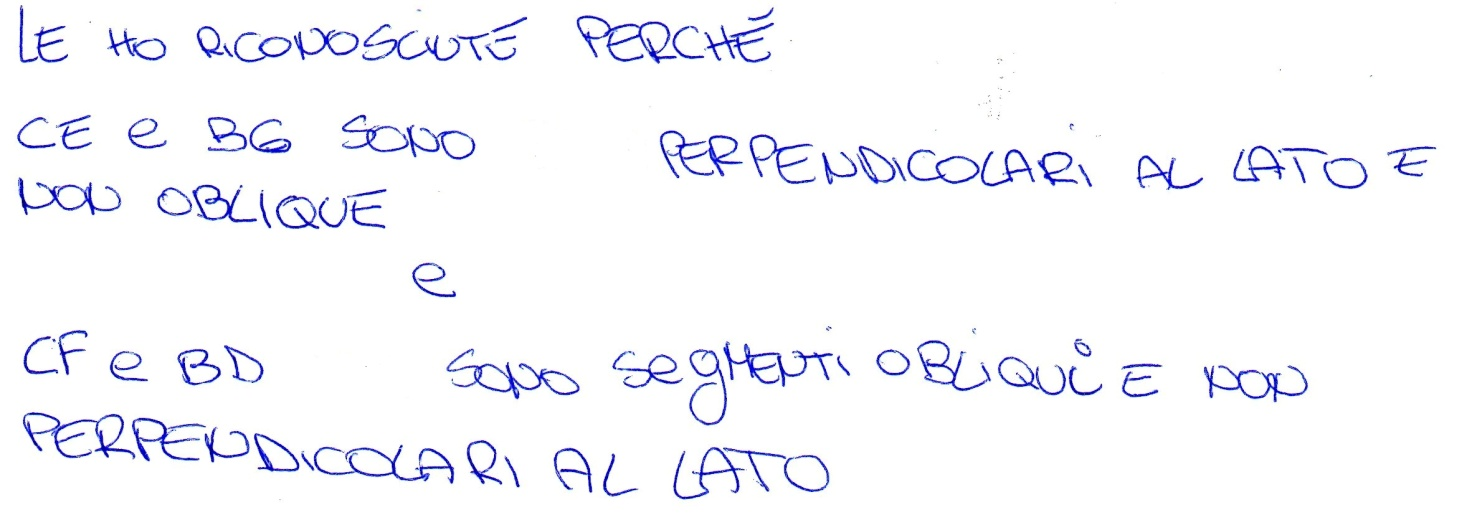 LE HO RICONOSCIUTE PERCHÉ
CE e BG SONO PERPENDICOLARI AL LATO E
NON OBLIQUE
e
CF e BD SONO SEGMENTI OBLIQUI E NON
PERPENDICOLARI AL LATO